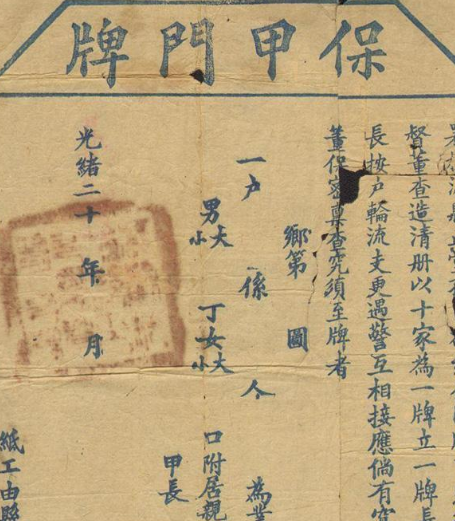 保甲門牌
督董查造清册以十家為一牌立一牌長
長按戶輪流支更遇警互相接應倘有
董保密稟查究須至牌者
鄉第 圖
一戶 係 人 為業
男大小 丁女大小 口附居親
甲長
光緒二十 年 月
紙工由縣